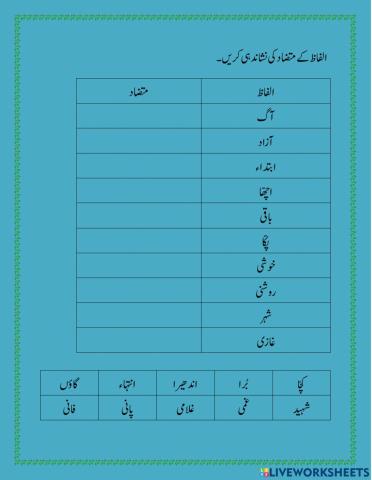 الفاظ کے متضاد کی نشاندہی کریں۔
الفاظ متضاد
آگ
آزاد
ابتداء
اچھا
باقی
پکّا
خوشی
روشنی
شہر
غازی
کچّا بُرا اندھیرا انتہاء گاؤں
شہید غمی غلامی پانی فانی
LIVEWORKSHEETS